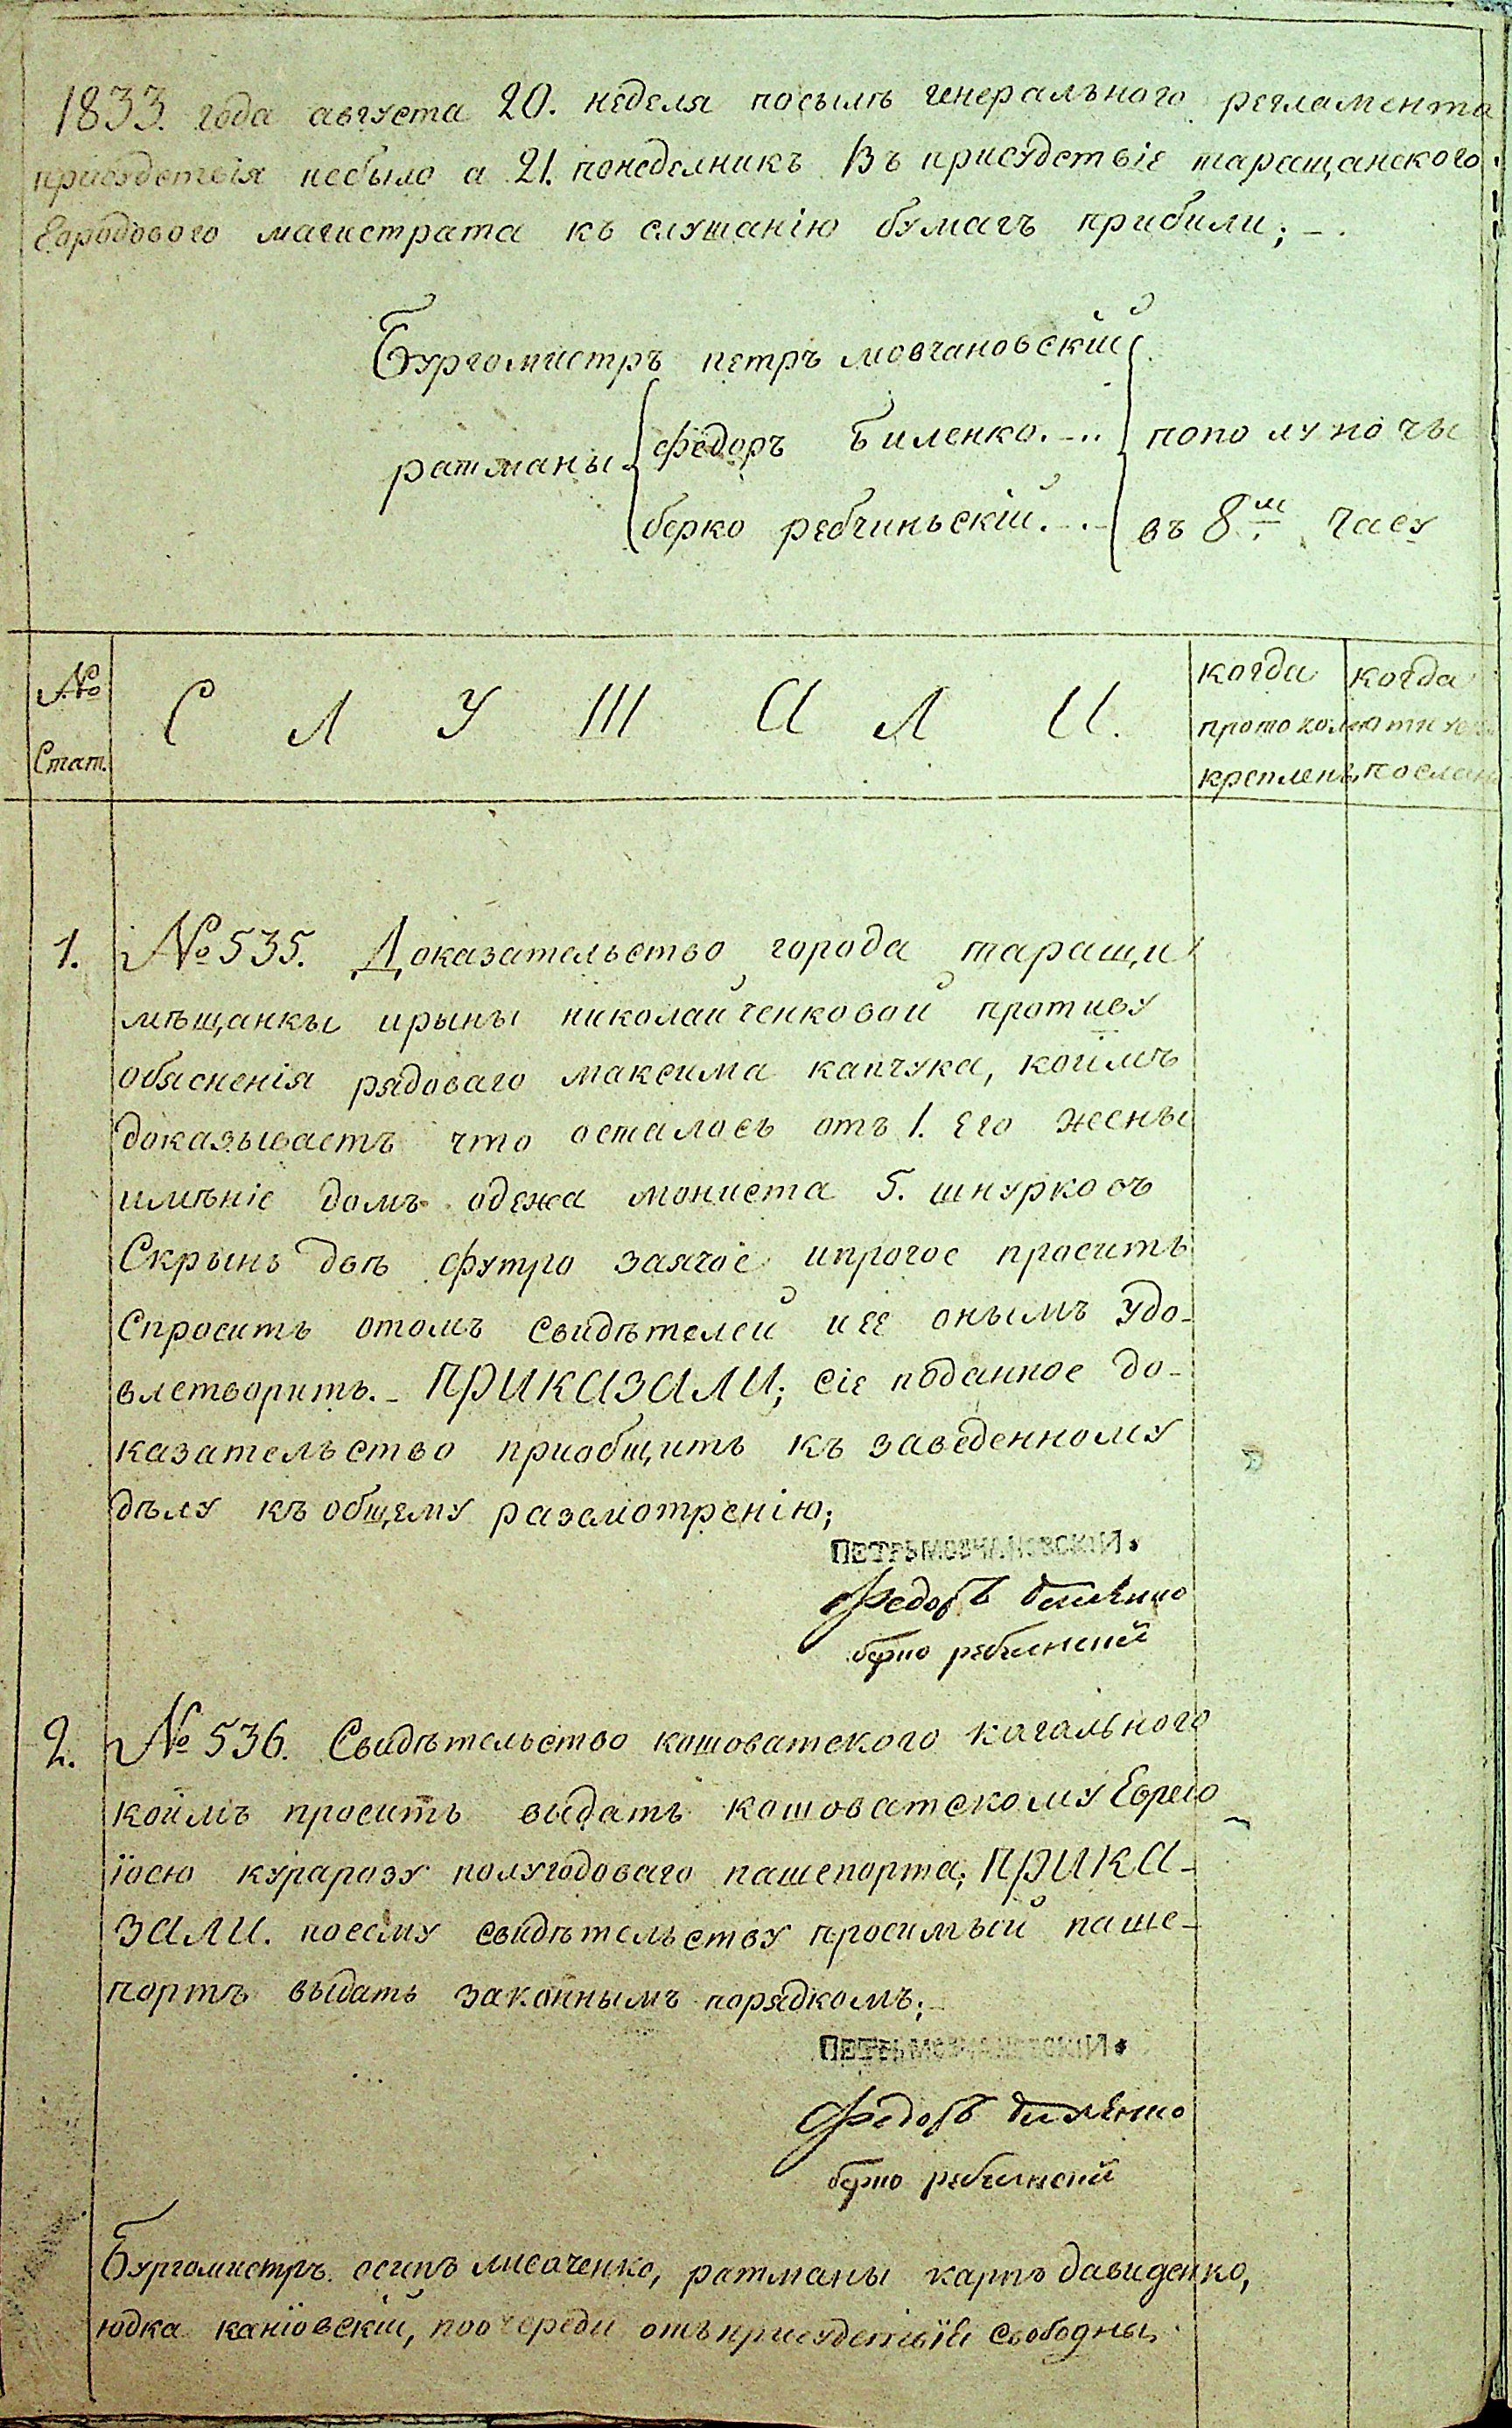 1833. года августа 20. неделя посылѣ генерального регламента
присудствія небыло а 21. понеделникъ Въ присудствіе таращанского
Городового магистрата къ слушанію бумагъ прибили; –.
Бургомистръ петръ мовчановскій
ратманы
федоръ Биленко. –..
берко ребчиньскій. –.–
пополуночы
въ 8м часу
№ Стат.
С Л У Ш А Л И.
когда протоколъ кремленъ
когда послан
1. № 535. Доказательство города таращи
мѣщанкы ирыны николайченковой противу
обясненія рядоваго максима капчука, коимъ
доказываетъ что осталось отъ 1. его жены
имѣніе домъ одежа мониста 5. шнурковъ
Скрынь двѣ футро заячое ипрочое просить
Спросить отомъ свидѣтелей иее онымъ удо-
влетворить. – ПРИКАЗАЛИ; сіе поданное до-
казательство приобщить къ заведенному
дѣлу къ общему разсмотренію;
ПЕТРЪ МОВЧАНОВСКІЙ.
Федоръ биленко
берко ребчинский
2. № 536. Свидѣтельство кошоватского кагального
коимъ просить выдать кошоватскому Еврею
їосю курарозу полугодоваго пашепорта; ПРИКА-
ЗАЛИ. поесму свидѣтельству просимый паше-
портъ выдать законнымъ порядкомъ;
ПЕТРЪ МОВЧАНОВСКІЙ.
Федоръ биленко
берко ребчинский
Бургомистръ осипъ лисаченко, ратманы карпъ давиденко,
юдка каніовскій, поочереди отъ присудствїя свободны.